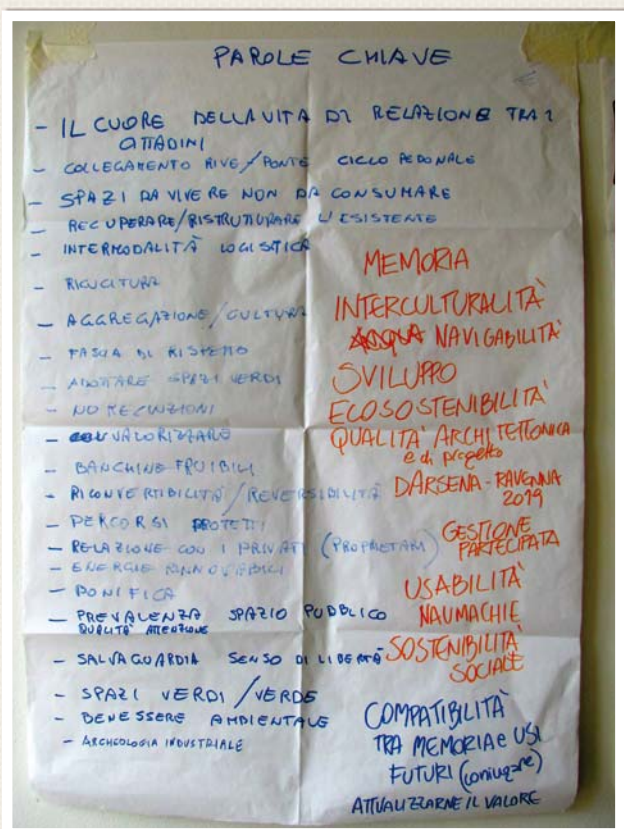 PAROLE CHIAVE
- IL CUORE DELLA VITA DI RELAZIONE TRA I
CITTADINI
- COLLEGAMENTO RIVE/PONTE CICLO PEDONALE
- SPAZI DA VIVERE NON DA CONSUMARE
- RECUPERARE/RISTRUTTURARE L'ESISTENTE
- INTERMODALITÀ LOGISTICA
- RICUCITURA
- AGGREGAZIONE/CULTURA
- FASCIA DI RISPETTO
- ADOTTARE SPAZI VERDI
- NO RECINZIONI
- VALORIZZARE
- BANCHINE FRUIBILI
- RICONVERTIBILITÀ/REVERSIBILITÀ
- PERCORSI PROTETTI
- RELAZIONE CON I PRIVATI (PROPRIETARI)
- ENERGIE RINNOVABILI
- BONIFICA
- PREVALENZA SPAZIO PUBBLICO
QUALITÀ ATTENZIONE
- SALVAGUARDIA SENSO DI LIBERTÀ
- SPAZI VERDI/VERDE
- BENESSERE AMBIENTALE
- ARCHEOLOGIA INDUSTRIALE
MEMORIA
INTERCULTURALITÀ
ACQUA NAVIGABILITÀ
SVILUPPO
ECOSOSTENIBILITÀ
QUALITÀ ARCHITETTONICA
e di progetto
DARSENA - RAVENNA
2019
GESTIONE
PARTECIPATA
USABILITÀ
NAUMACHIE
SOSTENIBILITÀ
SOCIALE
COMPATIBILITÀ
TRA MEMORIA e USI
FUTURI (coniugare)
ATTUALIZZARNE IL VALORE